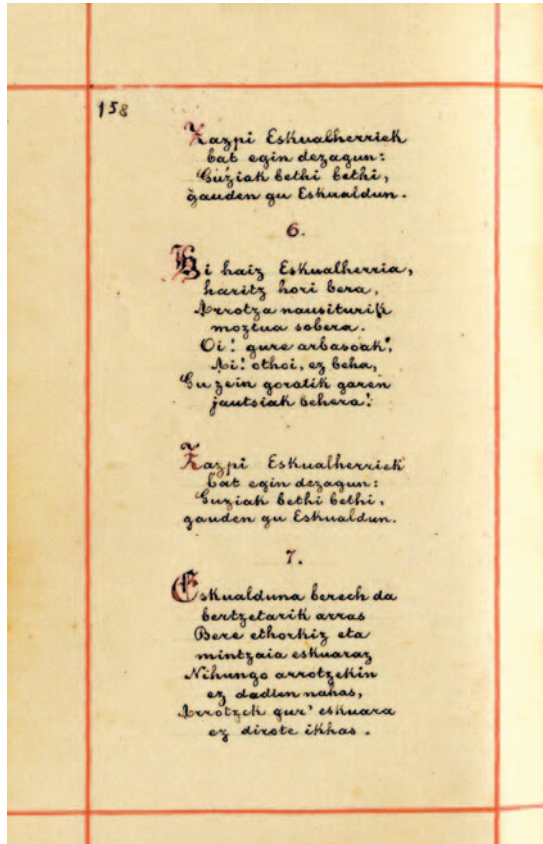 158
Zazpi Eskualherriek
bat egin dezagun:
Guziak bethi bethi,
gauden gu Eskualdun.
6.
Hi haiz Eskualherria,
haritz hori bera,
Arrotza nausiturik
moztua sobera.
Oi! gure arbasoak!
Ai! othoi, ez beha,
Gu zein goratik garen
jautsiak behera!
Zazpi Eskualherriek
bat egin dezagun:
Guziak bethi bethi,
gauden gu Eskualdun.
7.
Eskualduna berech da
bertzetarik arras
Bere ethorkiz eta
mintzaia eskuaraz
Nihungo arrotzekin
ez dadien nahas,
Arrotzek gur' eskuara
ez dirote ikhas.